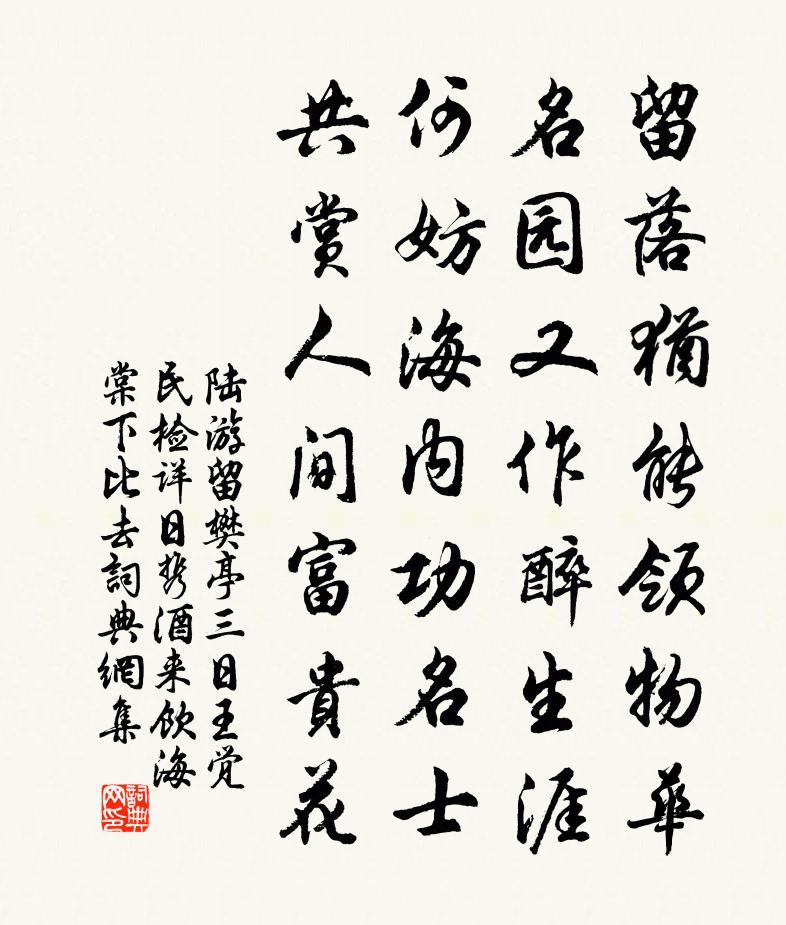 留落猶能領物華
名园又作醉生涯
何妨海内功名士
共赏人间富貴花
陆游留樊亭三日王觉
民检详日携酒来饮海
棠下比去詞典網集
詞典网印